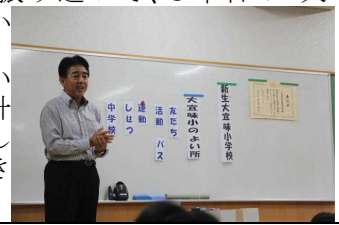 い
い
計
き
新生大宜味小学校
大宜味小のよい所
友だち
活動 バス
運動
しせつ
中学校